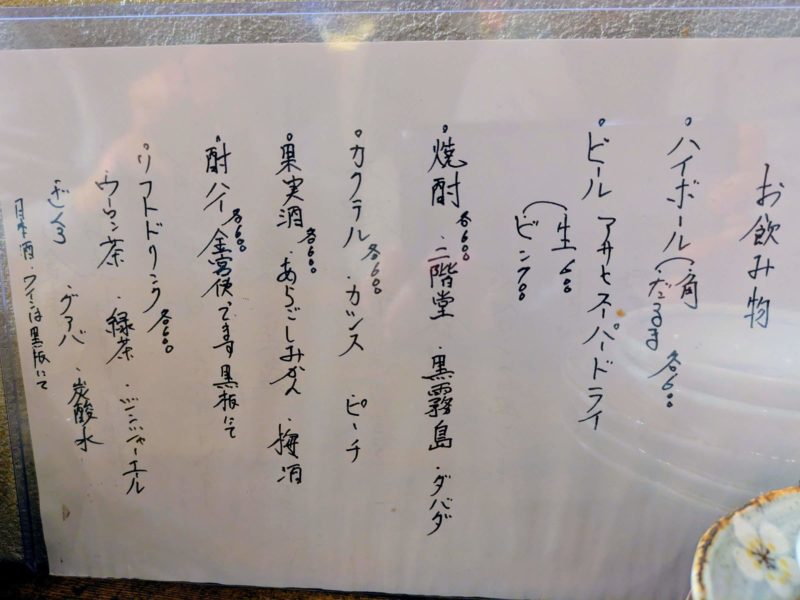 お飲み物
°ハイボール(角
だるま 各600
°ビール アサヒスーパードライ
(生 600
ビン700
°焼酎 各600 ・二階堂 ・黒霧島 ・ダバダ
°カクテル 各600 ・カシス ・ピーチ
°果実酒 各600 ・あらごしみかん ・梅酒
°酎ハイ 各600 金宮使てます 黒板にて
°ソフトドリンク 各600
ウーロン茶 ・緑茶 ・ジンジャーエール
・グァバ ・炭酸水
日本酒・ワインは黒板にて